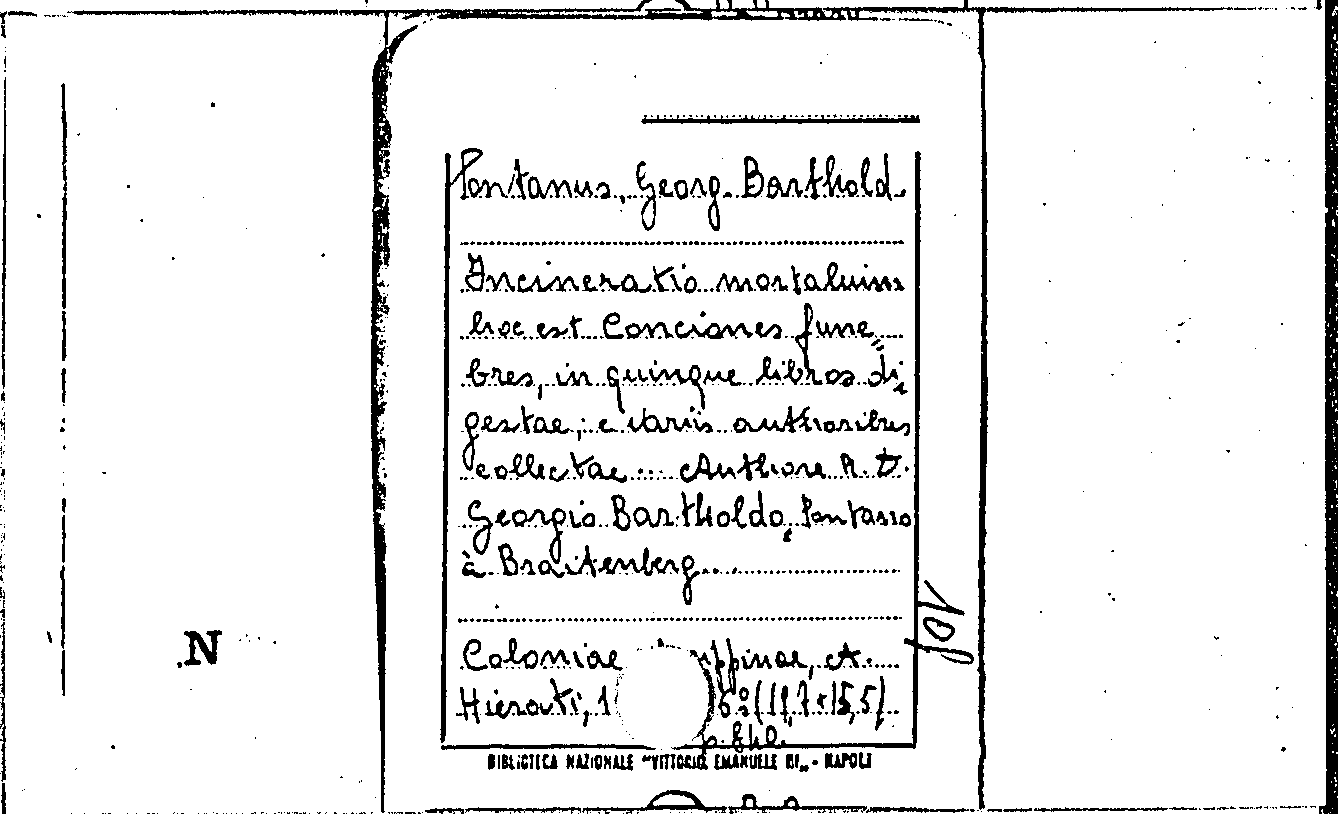 Pontanus, Georg. Barthold.
Incineratio mortalium
hoc est Conciones fune
bres, in quinque libros di
gestae, e variis authoribus
collectae... Authore R. D.
Georgio Bartholdo, Pontano
à Braitenberg...
Coloniae ppinae, A.
Hierati, 1 6°
p.
BIBLIOTECA NAZIONALE "VITTORIO EMANUELE III" - NAPOLI
N